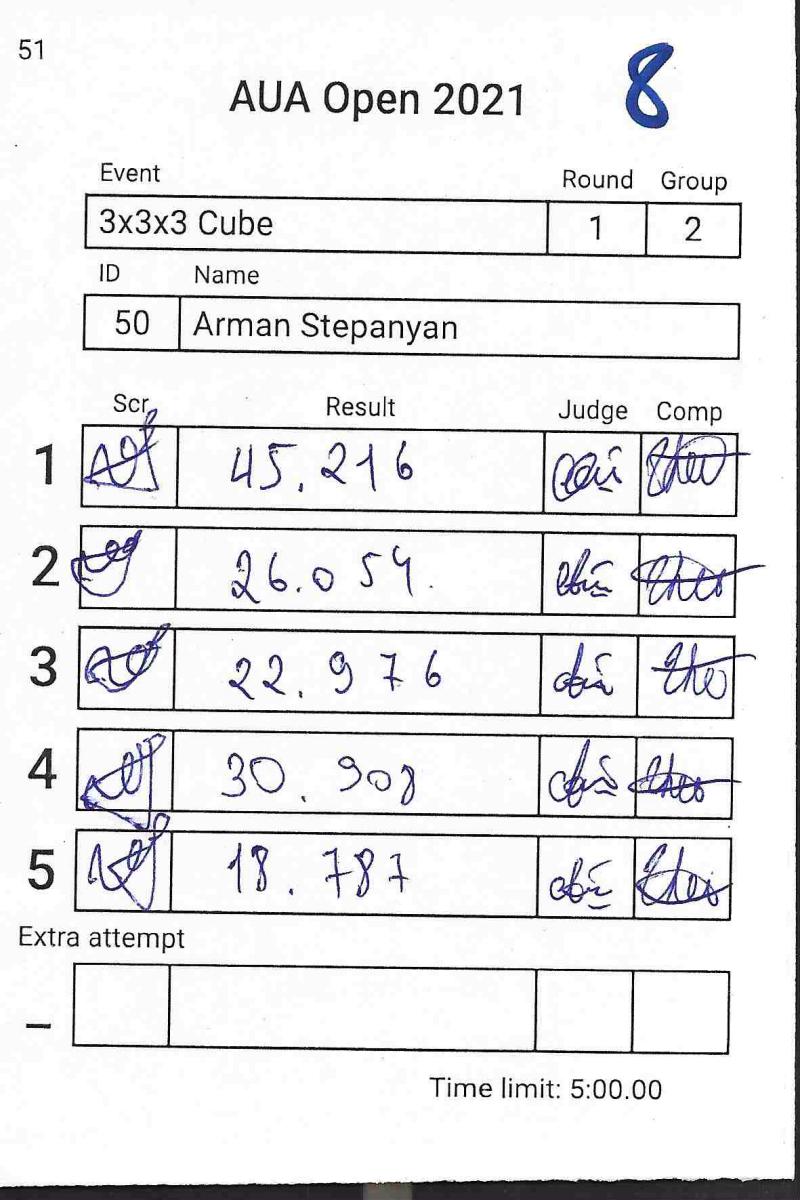 51
AUA Open 2021 8
Event Round Group
3x3x3 Cube 1 2
ID Name
50 Arman Stepanyan
Scr Result Judge Comp
1 45.216
2 26.054
3 22.976
4 30.908
5 18.787
Extra attempt
_
Time limit: 5:00.00